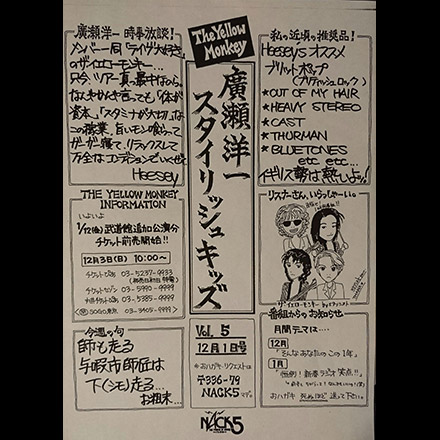 廣瀬洋一 時事放談!
メンバー一同「ライヴ大好き」
のザ・イエローモンキー…
只今、ツアー真最中ながら
なんやかんや言っても「体が
資本」「スタミナが大切!」な
この職業、旨いモン喰らって
ガーガー寝て、リラックスして
万全なコンディションでいくぜ!
Heesey
THE YELLOW MONKEY
INFORMATION
いよいよ
1/12(金) 武道館追加公演分
チケット前売開始!!
12月3日(日) 10:00〜
チケットぴあ 03-5237-9933
チケットセゾン 03-5990-9999
03-5385-9999
SOGO東京 03-3405-9999
今週の句
師も走る
与坂市師匠は
下(シモ)走る…
お粗末…
The Yellow
Monkey
廣瀬洋一
スタイリッシュキッズ
Vol. 5
12月1日号
おハガキ・リクエストは
〒336-79
NACK5まで
NACK5
私の近頃の推奨品!
Heeseyオススメ
ブリットポップ
(ブリティッシュロック)
*OUT OF MY HAIR
*HEAVY STEREO
*CAST
*THURMAN
*BLUETONES
etc etc…
イギリス勢は熱いよ!!
リスナーさん、いらっしゃーい。
ザ・イエローモンキー
番組からのお知らせ
月間テーマは…
12月
「そんなあなたのこの1年」
1月
「恒例!新春ラジオ笑点!!」
おハガキ 死ぬほど 送って下さい。